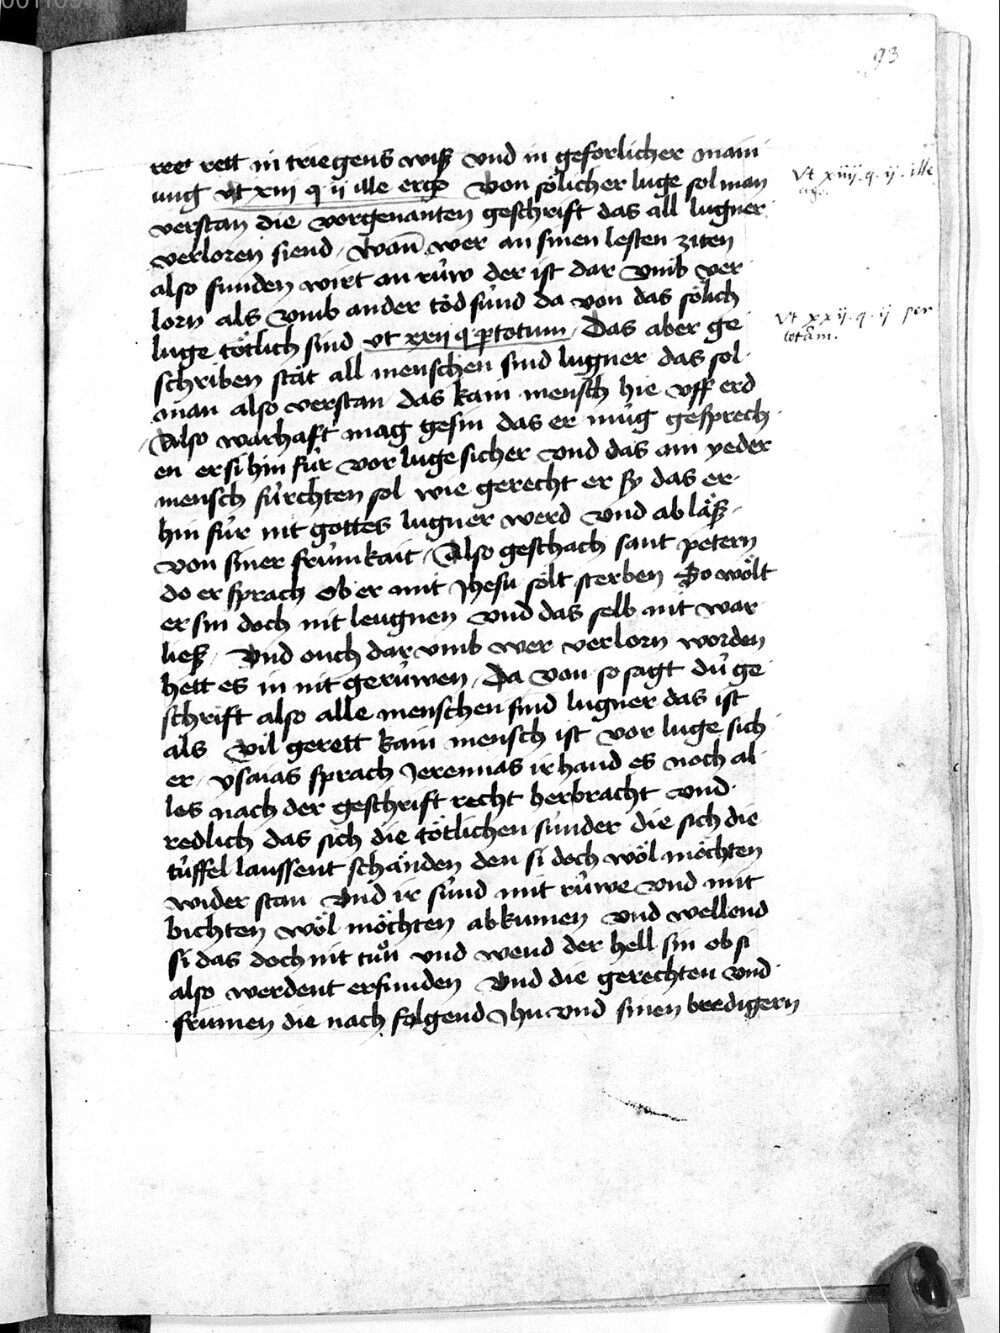 93
ree rett in triegens wiß vnd in geforlicher main
ung vt xiiij q ij ille ergo Von sölicher luge sol man
verstan die vorgenanten geschrift das all lugner
verloren siend · Wan̄ wer an sinen lesten ziten
also funden wirt an rüw der ist dar vmb ver
lorn als vmb ander töd sünd da von das sölich
luge tötlich sind vt xxij q ptotum · Das aber ge
schriben stät all menschen sind lugner das sol
man also verstan das kain mensch hie vff erd
Also warhaft mag gesin das er müg gesprech
en er si hin für vor luge sicher vnd das ain yeder
mensch fürchten sol wie gerecht er sy das er
hin für nit gottes lugner werd vnd abläß
von siner frümkait · Also geschach sant petern
do er sprach ob er mit Jhesu sölt sterben So wölt
er sin doch nit leugnen vnd das selb nit war
ließ · Vnd ouch dar vmb wer verlorn worden
hett es in nit gerüwen · Da von so sagt dü ge
schrift also alle menschen sind lugner das ist
als vil gerett kain mensch ist vor luge sich
er · ysaias sprach Jeremias ir hand es noch al
les nach der geschrift recht herbracht vnd
redlich das sich die tötlichen sünder die sich die
tüffel laussent schänden den si doch wöl möchten
wider stan Vnd ir sünd mit rüwe vnd mit
bichten wöl möchten abkumen vnd wellend
si das doch nit tuͦn vnd wend der hell sin ob si
also werdent erfunden Vnd die gerechten vnd
frumen die nach folgend Jhu vnd sinen bredigern
Vt xiiij. q. ij. ille
Vt xxij. q. ij per
totum.